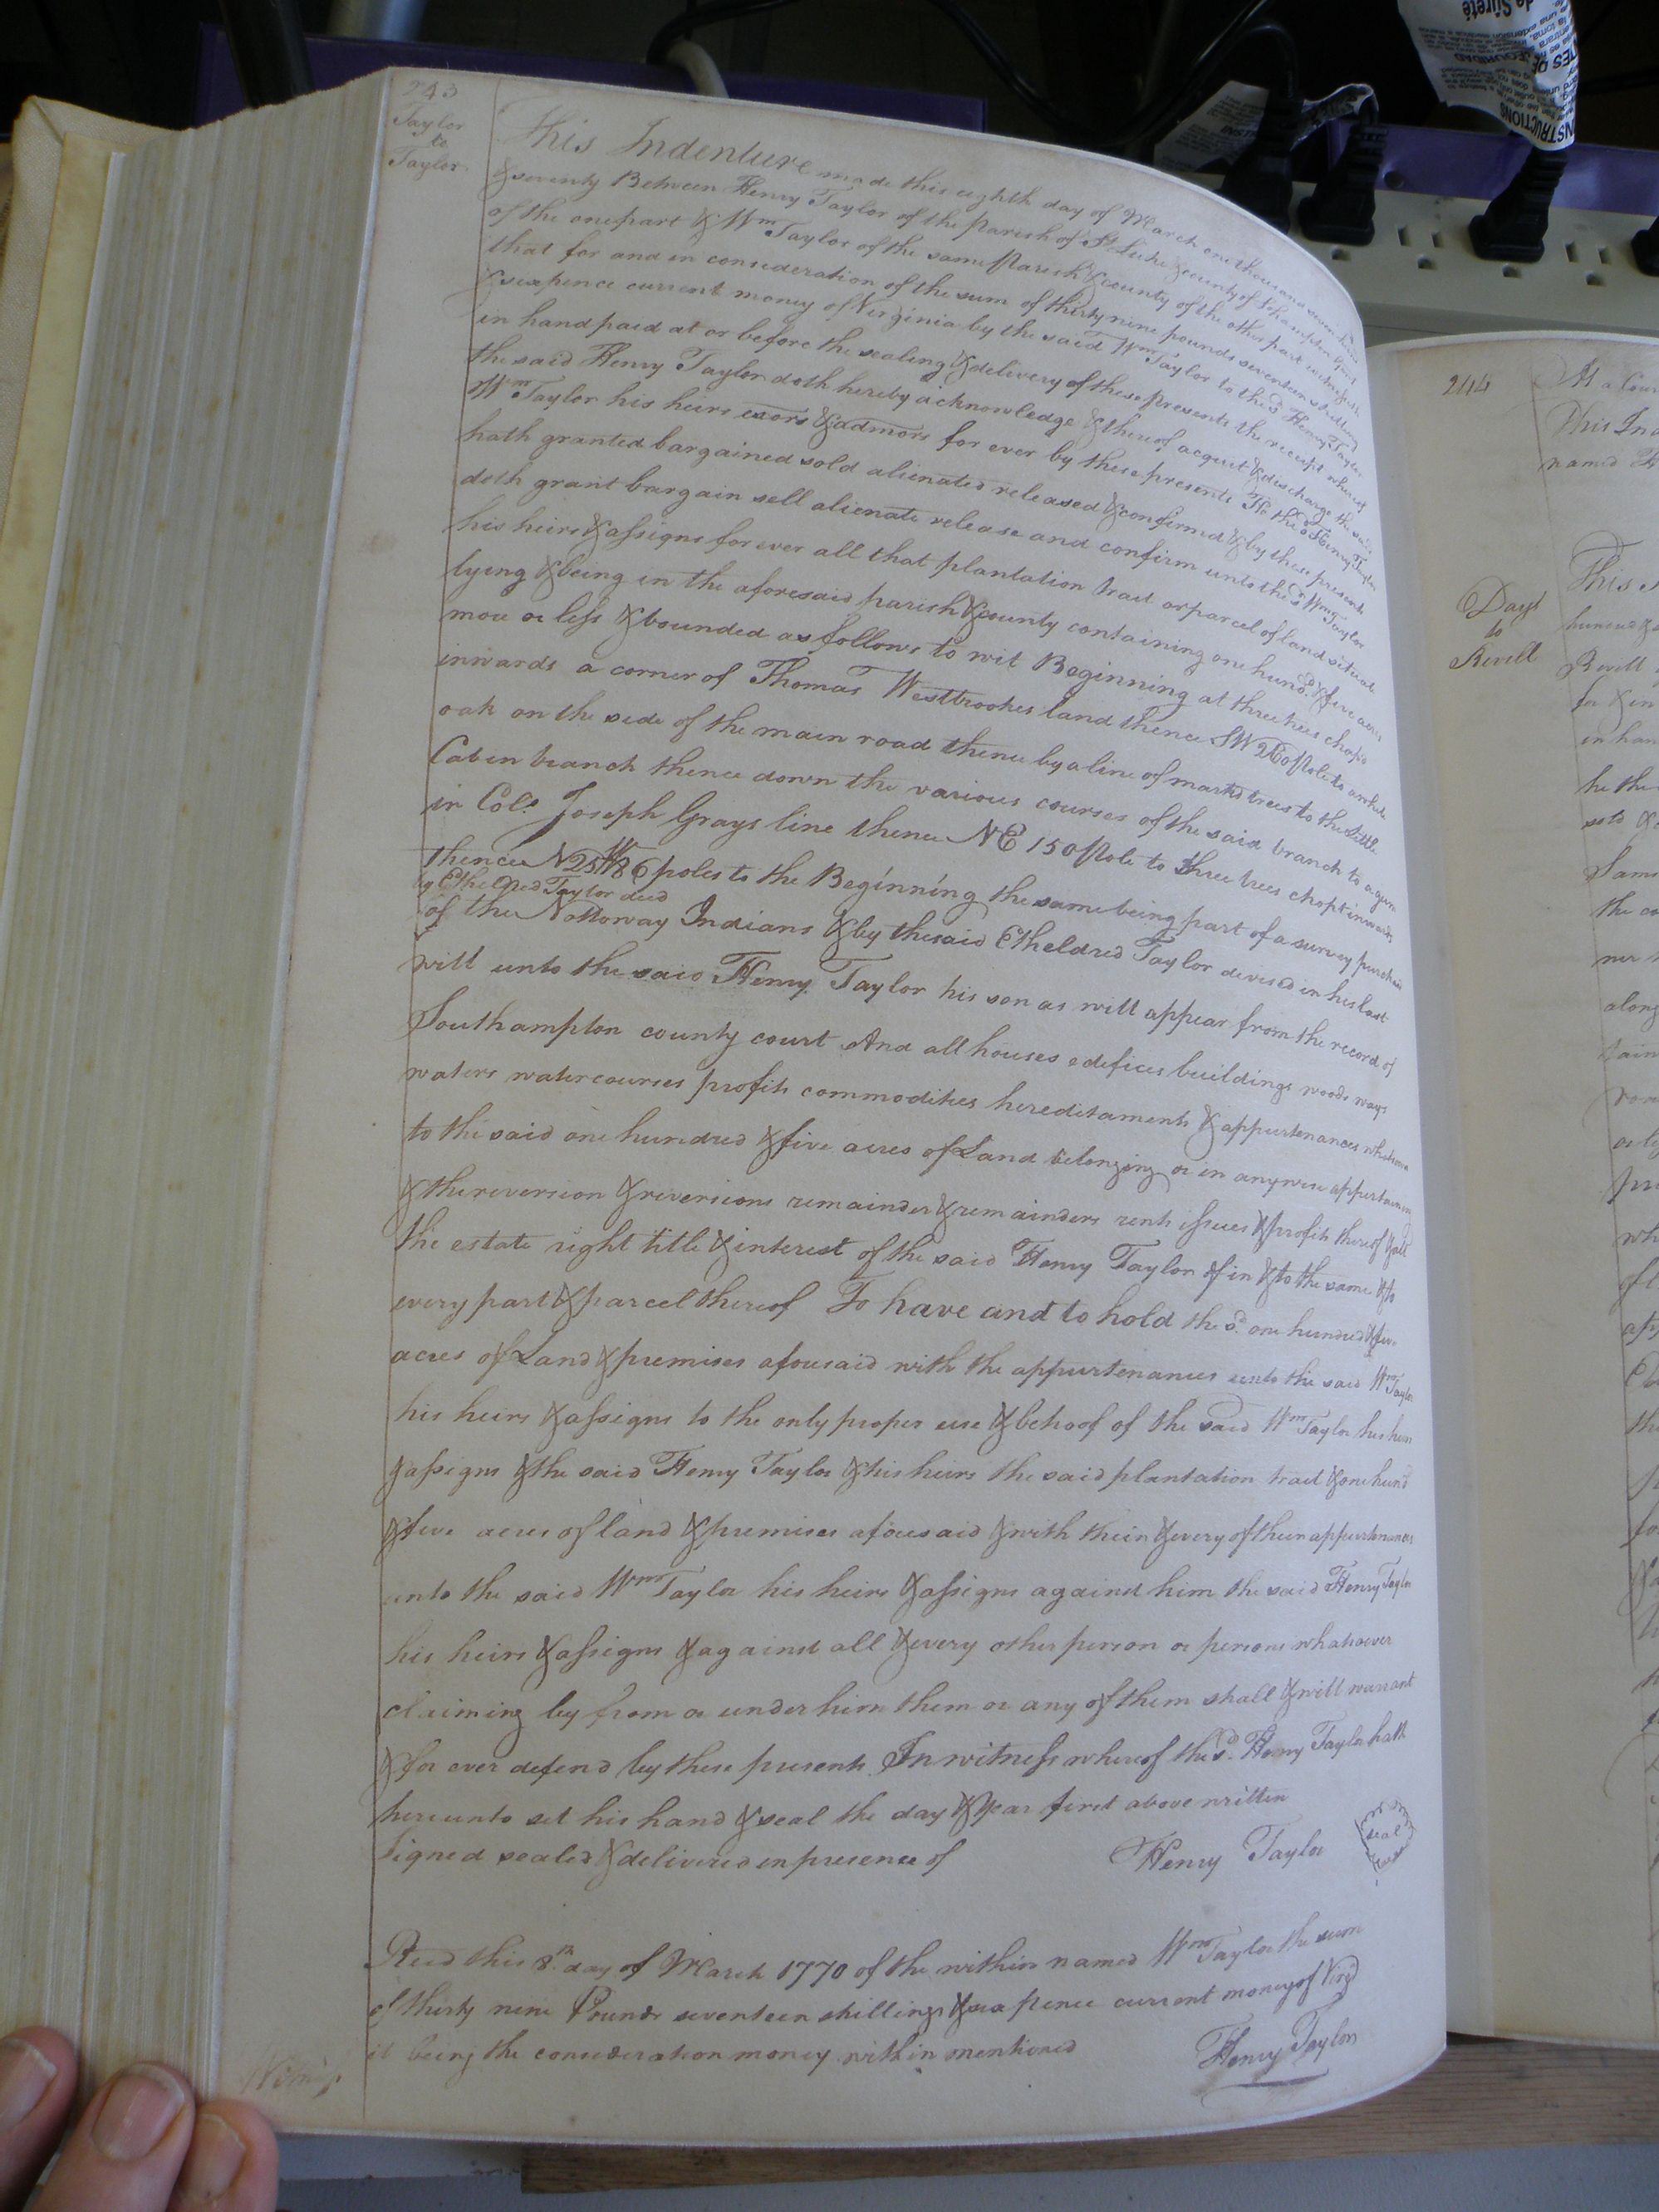 243
Taylor
to
Taylor
This Indenture made this eighth day of March one thousand seven hund
& seventy Between Henry Taylor of the parish of St Luke & county of Sohampton
of the one part & Wm Taylor of the same parish & county of the other part witnesseth
that for and in consideration of the sum of thirty nine pounds seventeen shillings
& sixpence current money of Virginia by the said Wm Taylor to the sd Henry Taylor
in hand paid at or before the sealing & delivery of these presents the receipt whereof
the said Henry Taylor doth hereby acknowledge & thereof acquit & discharge the said
Wm Taylor his heirs exors & admors for ever by these presents He the sd Henry Taylor
hath granted bargained sold alienated released & confirmed & by these presents
doth grant bargain sell alienate release and confirm unto the sd Wm Taylor
his heirs & assigns for ever all that plantation tract or parcel of land situate
lying & being in the aforesaid parish & county containing one hund.d & five acres
more or less & bounded as follows to wit Beginning at three trees chopt
inwards a corner of Thomas Westbrookes land thence SW 260 pole to a white
oak on the side of the main road thence by a line of markd trees to the little
Cabin branch thence down the various courses of the said branch to a gum
in Colo. Joseph Grays line thence NE 150 pole to three trees chopt inwards
thence N25W 86 poles to the Beginning the same being part of a survey purchasd
by Etheldred Taylor decd
of the Nottoway Indians & by the said Etheldred Taylor devised in his last
will unto the said Henry Taylor his son as will appear from the record of
Southampton county court And all houses edifices buildings woods ways
waters watercourses profits commodities hereditaments & appurtenances whatsoever
to the said one hundred & five acres of Land belonging or in anywise appertaining
& the reversion & reversions remainder & remainders rents issues & profits thereof & all
the estate right title & interest of the said Henry Taylor of in & to the same & to
every part & parcel thereof To have and to hold the sd. one hundred & five
acres of Land & premises aforesaid with the appurtenances unto the said Wm Taylor
his heirs & assigns to the only proper use & behoof of the said Wm Taylor his heirs
& assigns & the said Henry Taylor & his heirs the said plantation tract & one hund
& five acres of land & premises aforesaid & with their & every of their appurtenances
unto the said Wm Taylor his heirs & assigns against him the said Henry Taylor
his heirs & assigns & against all & every other person or persons whatsoever
claiming by from or under him them or any of them shall & will warrant
& for ever defend by these presents In witness whereof the sd. Henry Taylor hath
hereunto set his hand & seal the day & year first above written
Signed sealed & delivered in presence of
Henry Taylor
seal
Recd this 8th day of March 1770 of the within named Wm Taylor the sum
of thirty nine Pounds seventeen shillings & six pence current money of Virga
it being the consideration money within mentioned
Henry Taylor
244
At a Cour
This Ind
named
Days
to
Revell
This
hundred &
Revell
for & in
in han
he the
sold &
Sam
the co
along